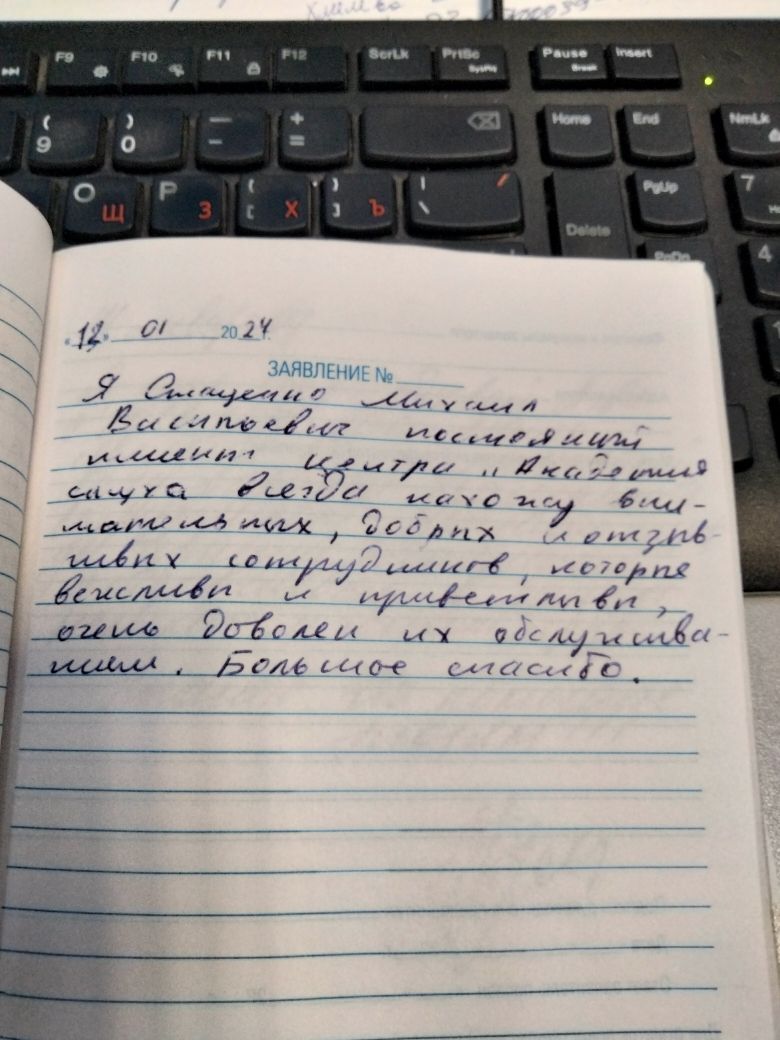 химво
F9 F10 F11 F12 ScrLk PrtSc SysRq Pause Break Insert
( 9 ) 0 — - + = Home End NmLk
О Щ Р З { [ Х } ] Ъ | \ / Delete PgUp 7
PgDn 4
«12» 01 2024
ЗАЯВЛЕНИЕ №
Я Михаил
Васильевич постоянный
клиент центра „Академия
слуха всегда нахожу вни-
мательных, добрых и отзыв-
чивых сотрудников, которые
вежливы и приветливы,
очень доволен их обслужива-
нием. Большое спасибо.